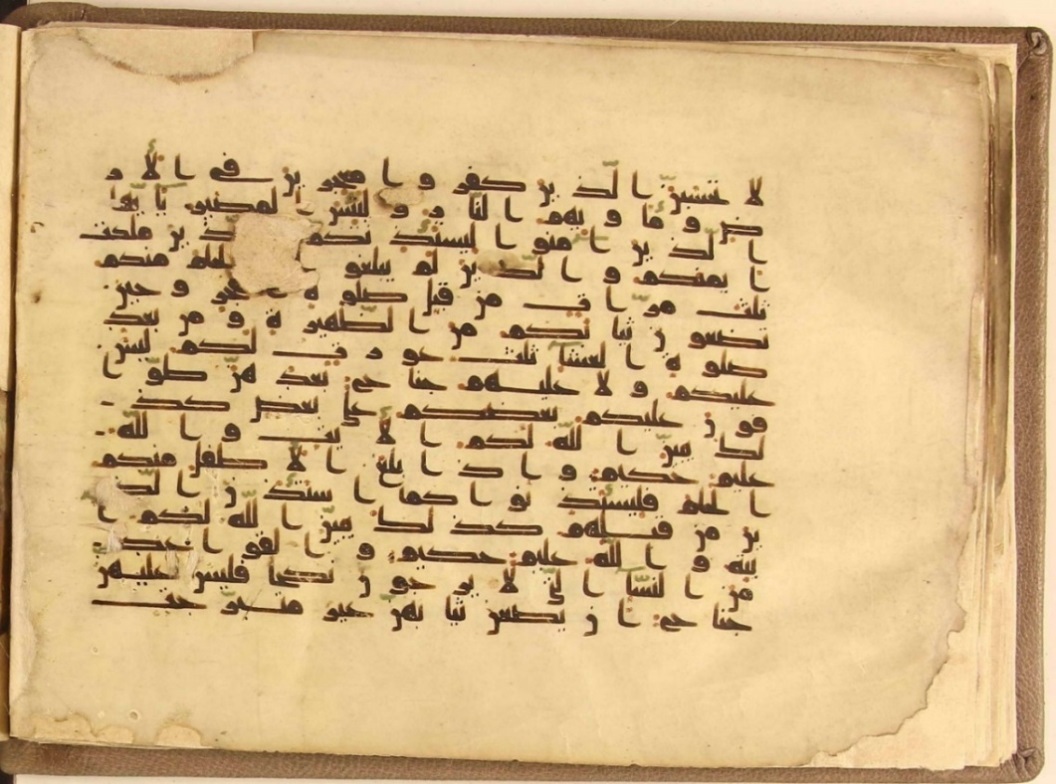 لا تحسبن الذين كفروا معجزين في الأر
ض ومأويهم النار ولبئس المصير يأيها
الذين ءامنوا ليستئذنكم الذين ملكت
أيمنكم والذين لم يبلغوا الحلم منكم
ثلث مرات من قبل صلوة الفجر وحين
تضعون ثيابكم من الظهيرة ومن بعد
صلوة العشاء ثلث عورات لكم ليس
عليكم ولا عليهم جناح بعدهن طوا
فون عليكم بعضكم على بعض كذ
لك يبين الله لكم الايت والله
عليم حكيم وإذا بلغ الأطفل منكم
الحلم فليستئذنوا كما استئذن الذ
ين من قبلهم كذلك يبين الله لكم ا
يته والله عليم حكيم والقواعد
من النساء التي لا يرجون نكاحا فليس عليهن
جناح أن يضعن ثيابهن غير متبرجت